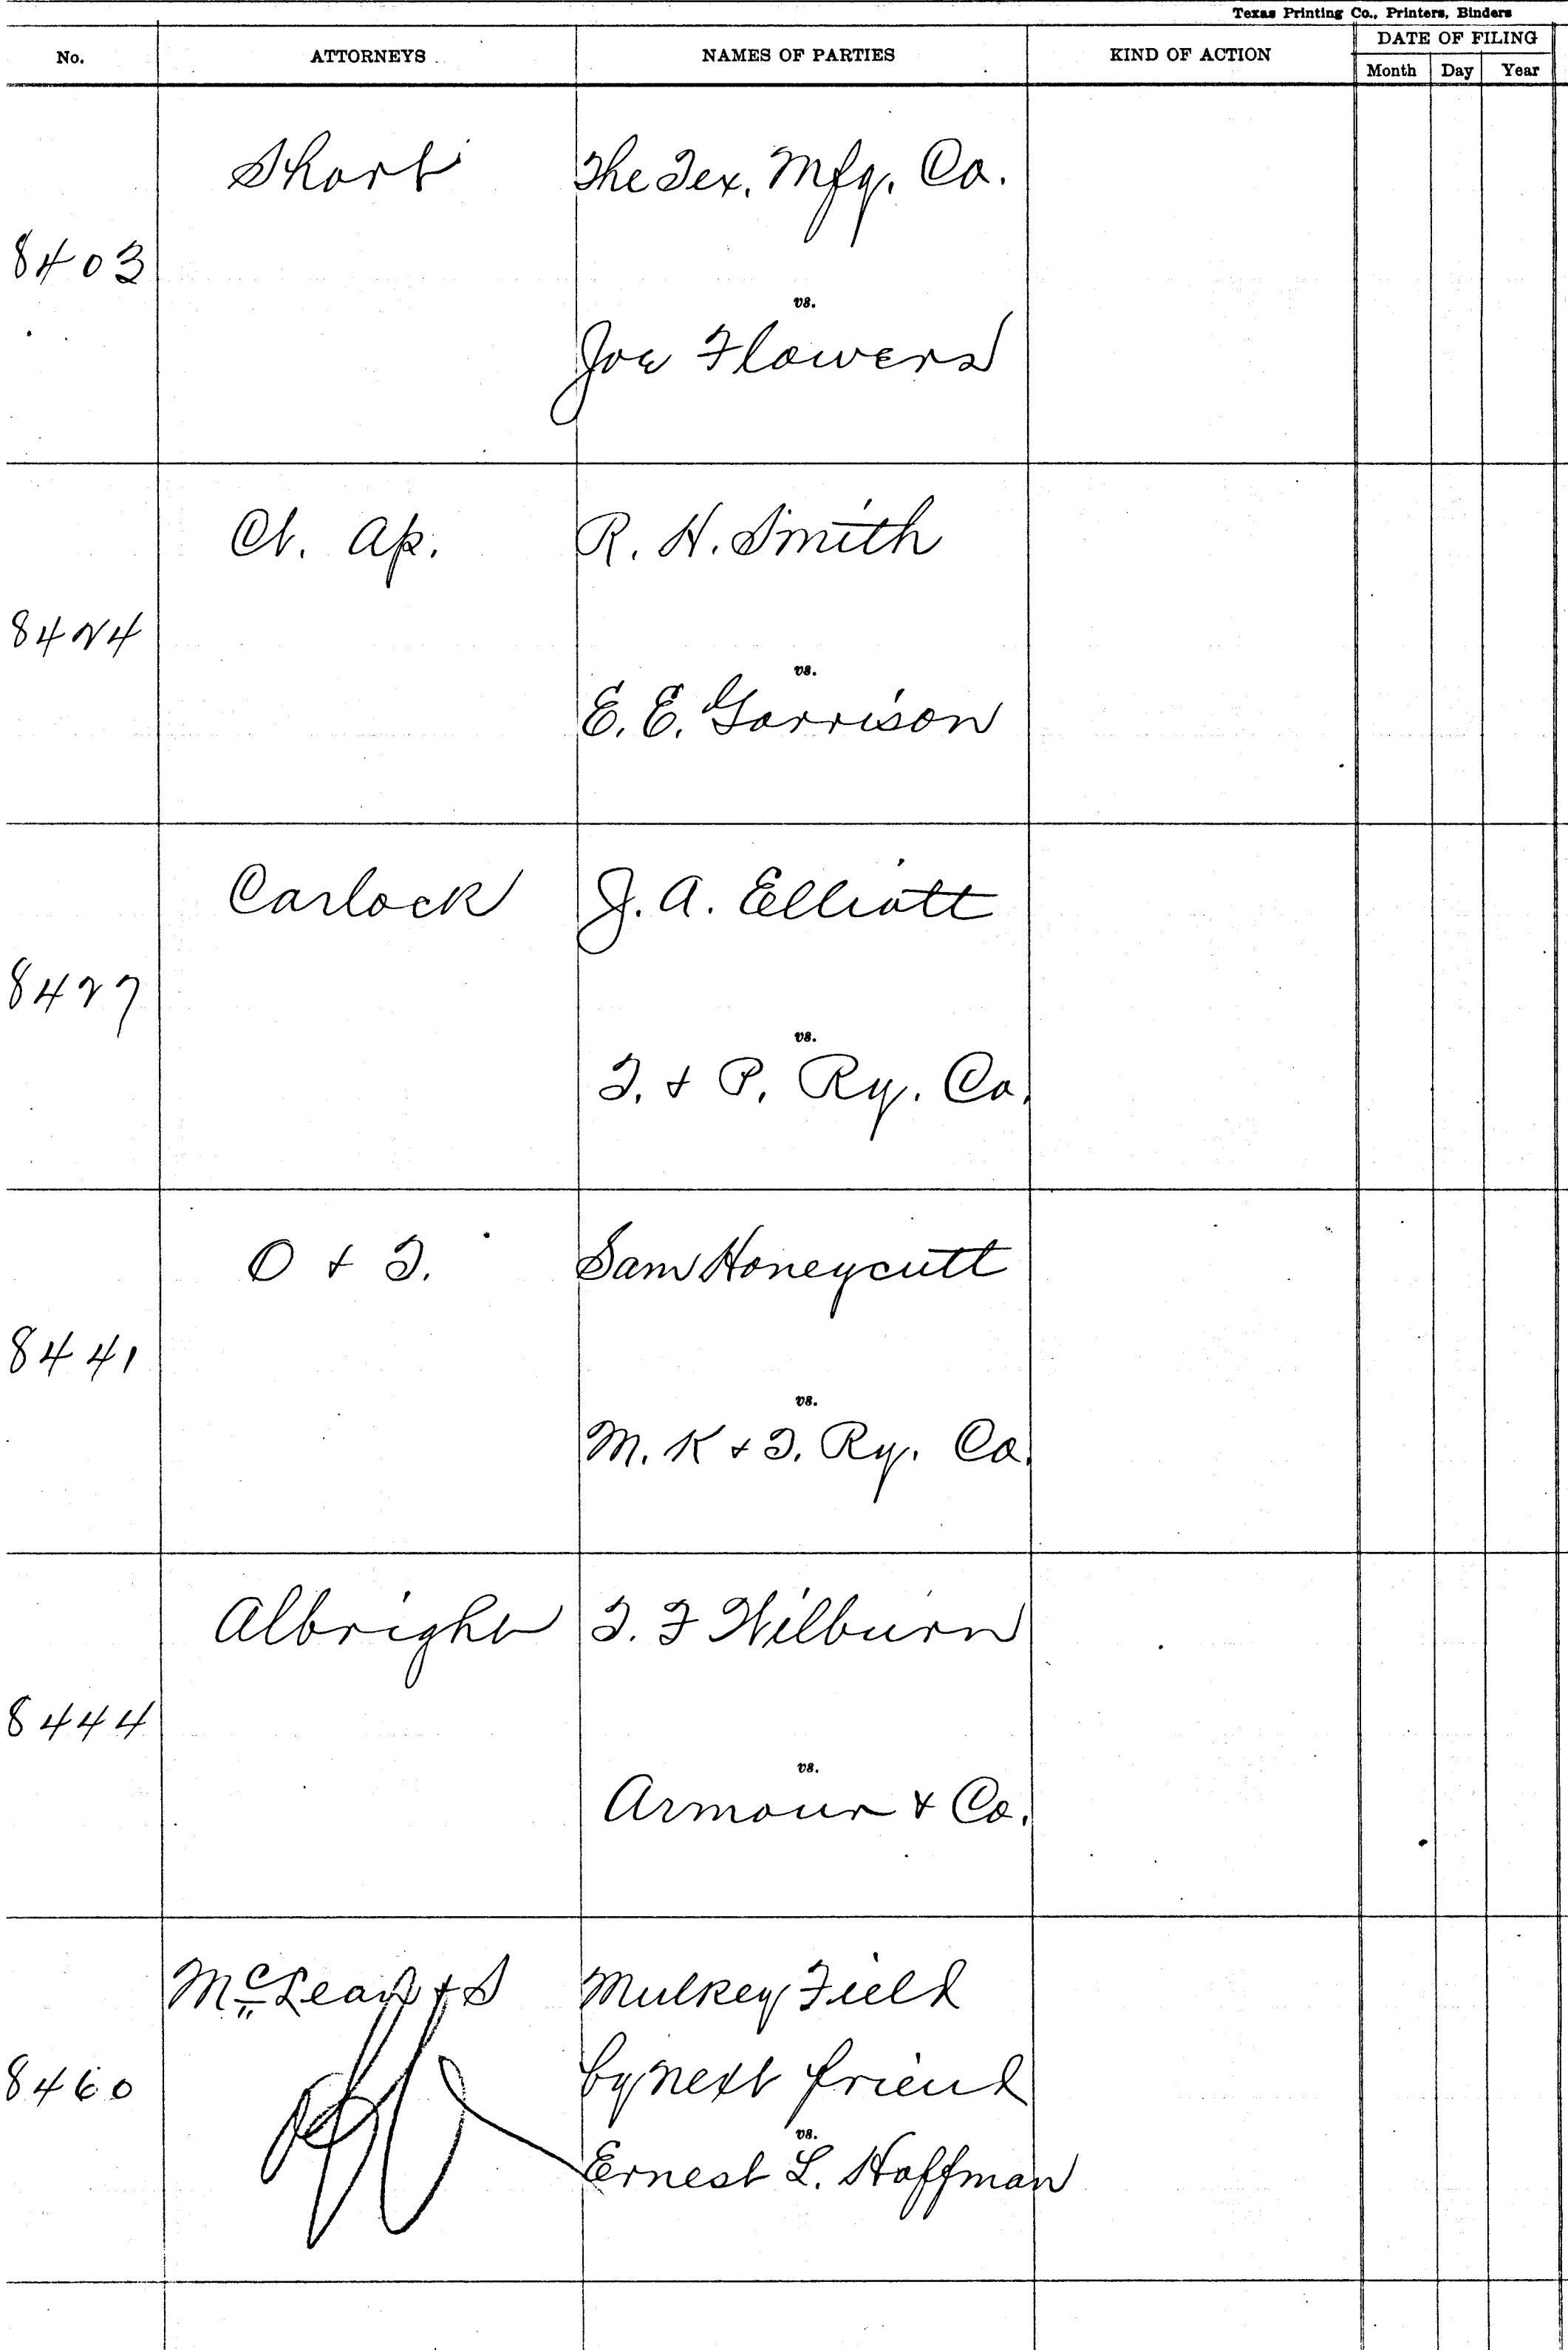 Texas Printing Co., Printers, Binders
No. ATTORNEYS NAMES OF PARTIES KIND OF ACTION DATE OF FILING
Month Day Year
Short The Tex. Mfg. Co.
8403
vs.
Joe Flowers
Ct. Ap. R. H. Smith
8424
vs.
E. E. Garrison
Carlock J. A. Elliott
8427
vs.
T. & P. Ry. Co.
O & T. Sam Honeycutt
8441
vs.
M. K & T. Ry. Co.
Albright T. F Wilburn
8444
vs.
Armour & Co.
McLean & S Mulkey Field
8460 by next friend
vs.
Ernest L. Hoffman